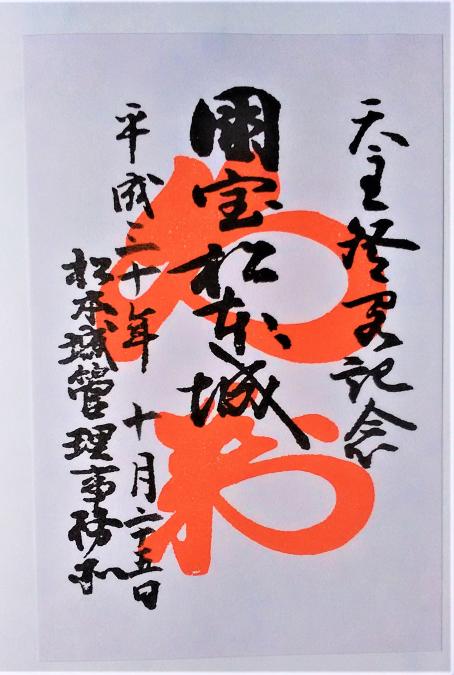 天主登閣記念
國宝松本城
平成三十年 十月二十五日
松本城管理事務所